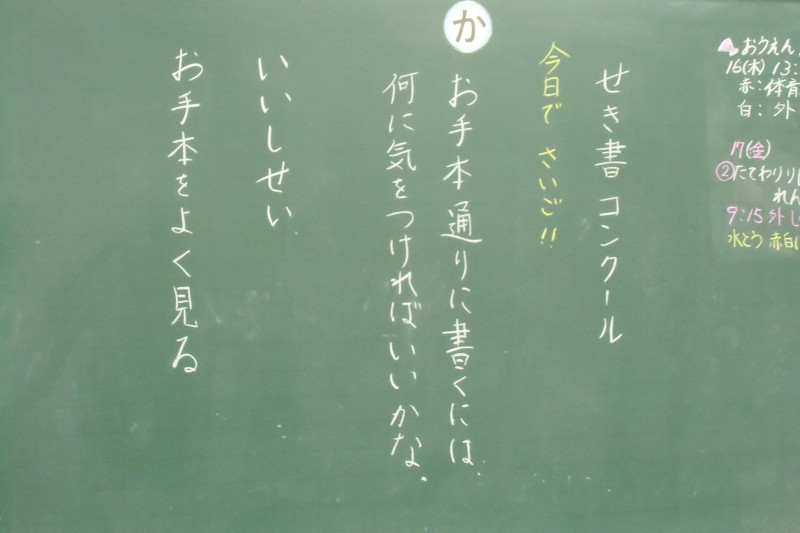 せき書 コンクール
今日で さいご!!
か
お手本通りに書くには、
何に気をつければいいかな。
いいしせい、
お手本をよく見る
おうえん
16(木) 13:
赤:体育
白:外
17(金)
②たてわり
れん
9:15 外
水とう 赤白